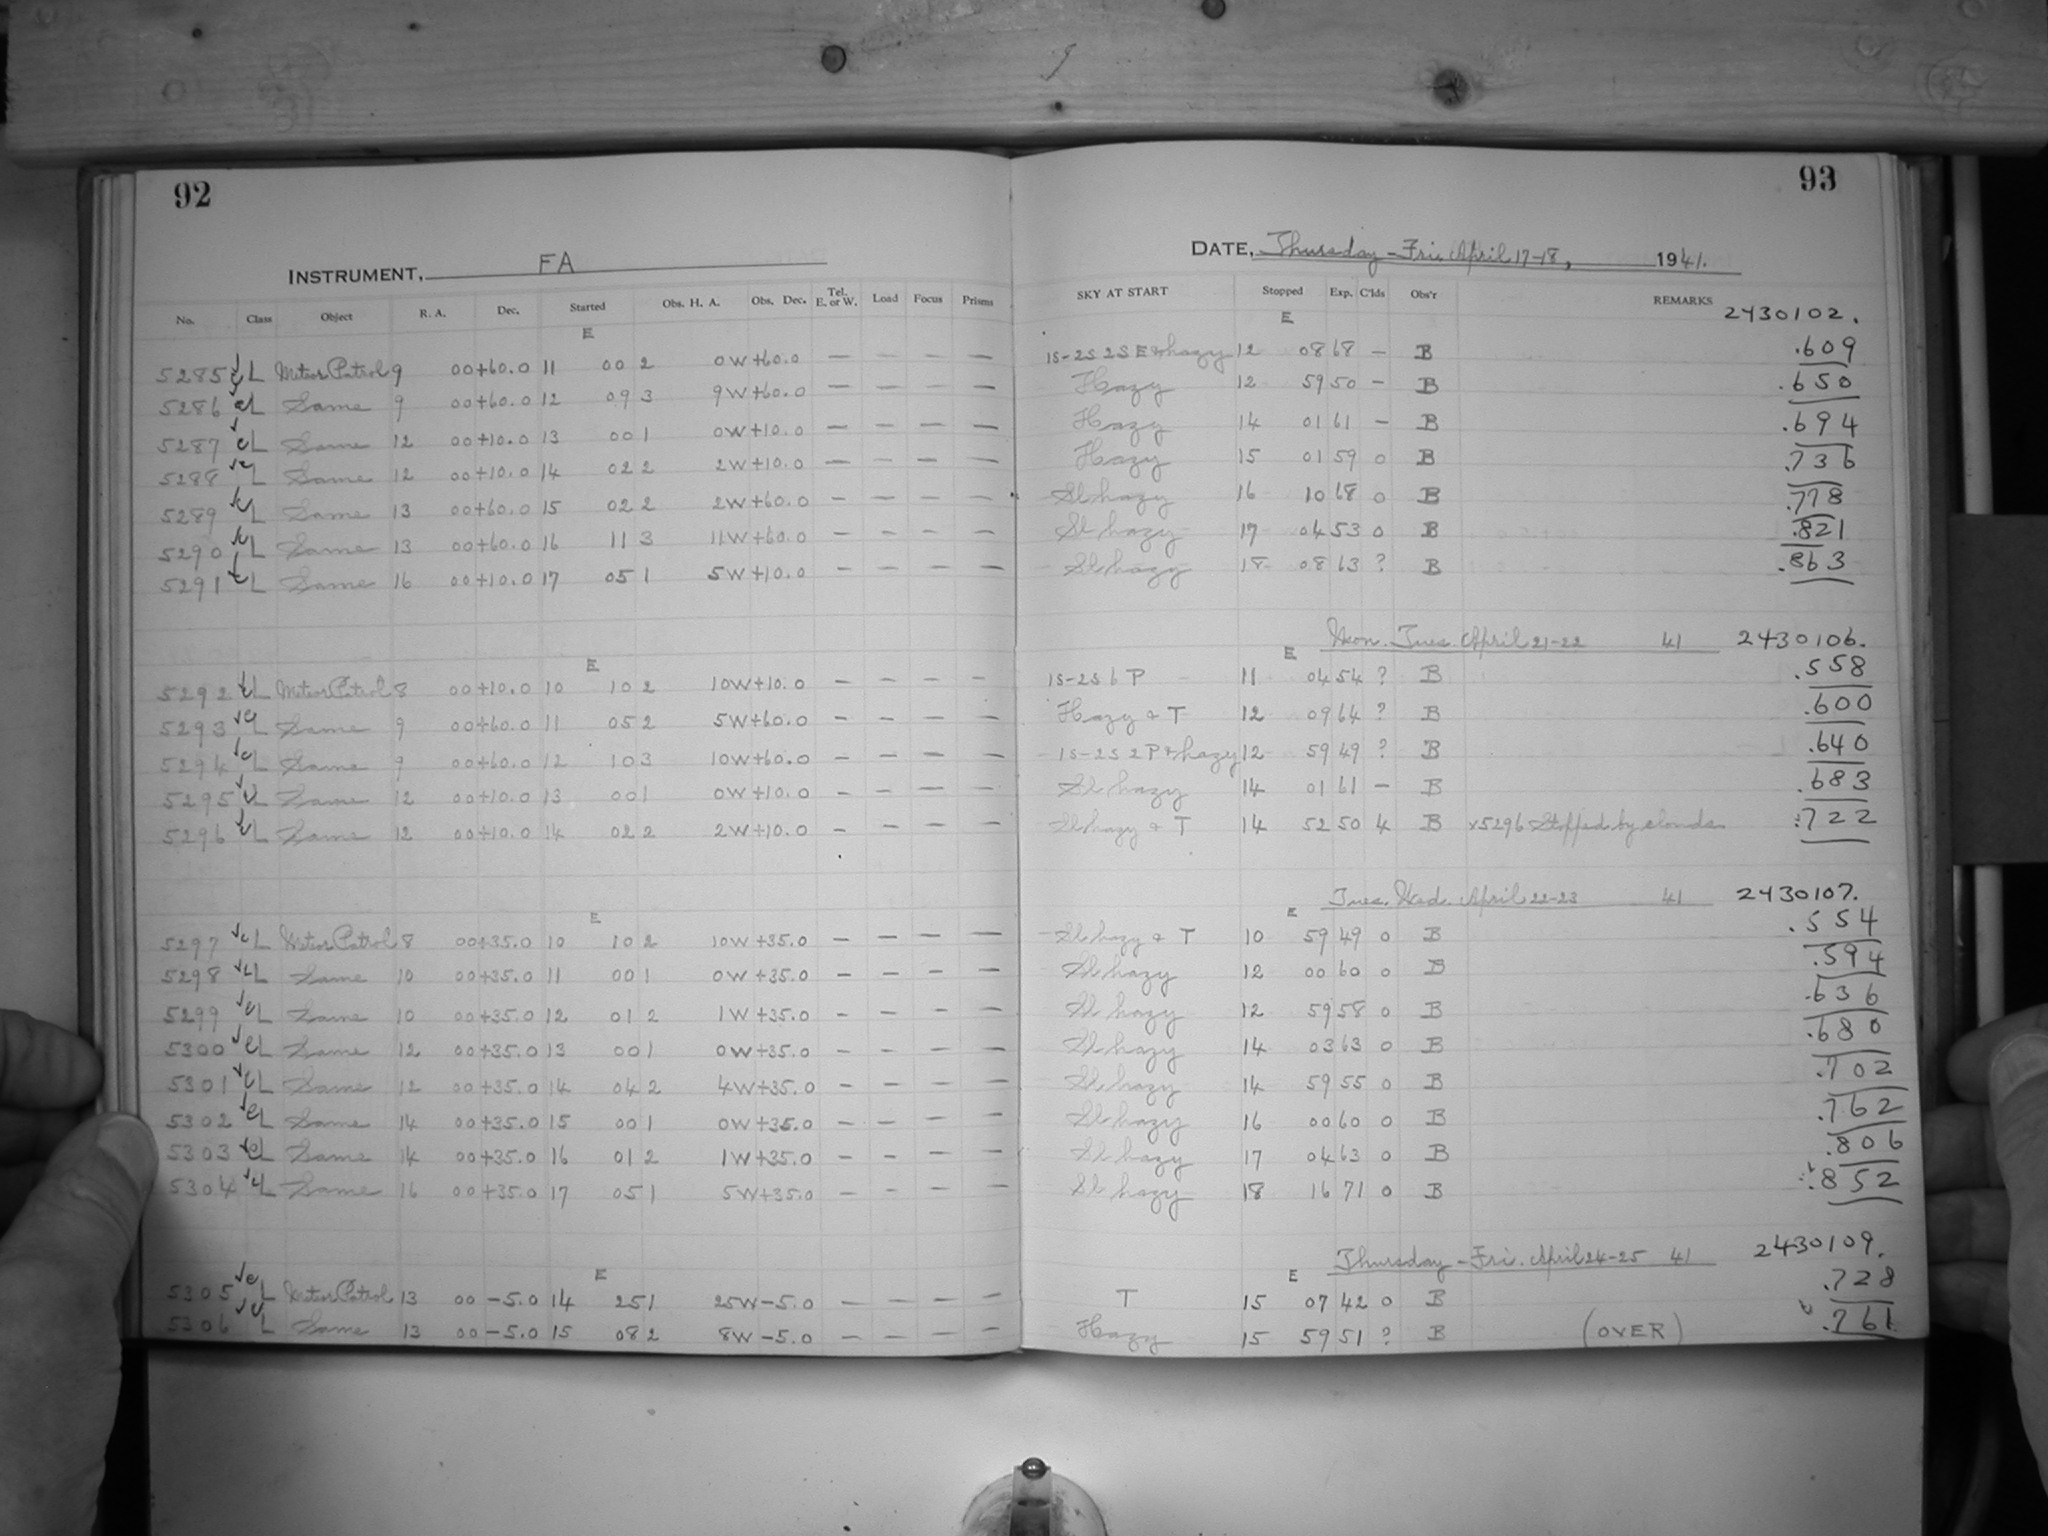 92
INSTRUMENT, FA
No. Class Object R. A. Dec. Started Obs. H. A. Obs. Dec. Tel. E. or W. Load Focus Prisms
E
5285 L Meteor Patrol 9 00 +60.0 11 00 2 0W +60.0 — — — —
5286 L Same 9 00 +60.0 12 09 3 9W +60.0 — — — —
5287 L Same 12 00 +10.0 13 00 1 0W +10.0 — — — —
5288 L Same 12 00 +10.0 14 02 2 2W +10.0 — — — —
5289 L Same 13 00 +60.0 15 02 2 2W +60.0 — — — —
5290 L Same 13 00 +60.0 16 11 3 11W +60.0 — — — —
5291 L Same 16 00 +10.0 17 05 1 5W +10.0 — — — —
E
5292 L Meteor Patrol 8 00 +10.0 10 10 2 10W +10.0 — — — —
5293 L Same 9 00 +60.0 11 05 2 5W +60.0 — — — —
5294 L Same 9 00 +60.0 12 10 3 10W +60.0 — — — —
5295 L Same 12 00 +10.0 13 00 1 0W +10.0 — — — —
5296 L Same 12 00 +10.0 14 02 2 2W +10.0 — — — —
E
5297 L Meteor Patrol 8 00 +35.0 10 10 2 10W +35.0 — — — —
5298 L Same 10 00 +35.0 11 00 1 0W +35.0 — — — —
5299 L Same 10 00 +35.0 12 01 2 1W +35.0 — — — —
5300 L Same 12 00 +35.0 13 00 1 0W +35.0 — — — —
5301 L Same 12 00 +35.0 14 04 2 4W +35.0 — — — —
5302 L Same 14 00 +35.0 15 00 1 0W +35.0 — — — —
5303 L Same 14 00 +35.0 16 01 2 1W +35.0 — — — —
5304 L Same 16 00 +35.0 17 05 1 5W +35.0 — — — —
E
5305 L Meteor Patrol 13 00 -5.0 14 25 1 25W -5.0 — — — —
5306 L Same 13 00 -5.0 15 08 2 8W -5.0 — — — —
93
DATE, Thursday - Fri. April 17-18, 1941.
SKY AT START Stopped Exp. C'lds Obs'r REMARKS
E 2430102.
1S-2S 2S E & hazy 12 08 68 — B .609
Hazy 12 59 50 — B .650
Hazy 14 01 61 — B .694
Hazy 15 01 59 0 B .736
Sl hazy 16 10 68 0 B .778
Sl hazy 17 04 53 0 B .821
Sl hazy 18 08 63 ? B .863
E Mon. Tues. April 21-22 41 2430106.
1S-2S 6 P 11 04 54 ? B .558
Hazy & T 12 09 64 ? B .600
1S-2S 2P & hazy 12 59 49 ? B .640
Sl hazy 14 01 61 — B .683
Sl hazy & T 14 52 50 4 B x5296 Stopped by clouds .722
E Tues. Wed. April 22-23 41 2430107.
Sl hazy & T 10 59 49 0 B .554
Sl hazy 12 00 60 0 B .594
Sl hazy 12 59 58 0 B .636
Sl hazy 14 03 63 0 B .680
Sl hazy 14 59 55 0 B .702
Sl hazy 16 00 60 0 B .762
Sl hazy 17 04 63 0 B .806
Sl hazy 18 16 71 0 B .852
E Thursday - Fri. April 24-25 41 2430109.
T 15 07 42 0 B .728
Hazy 15 59 51 ? B (OVER) .761